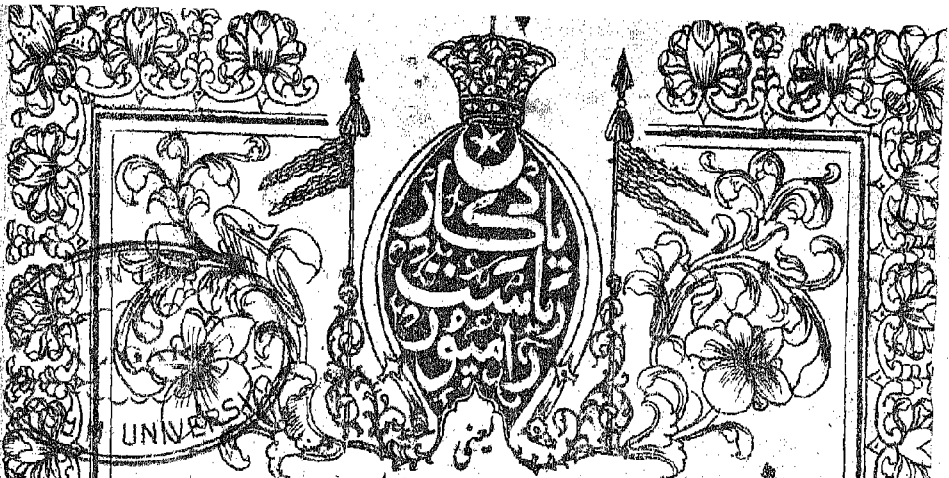 یادگار
ریاست
رامپور
یعنی
UNIVERSI